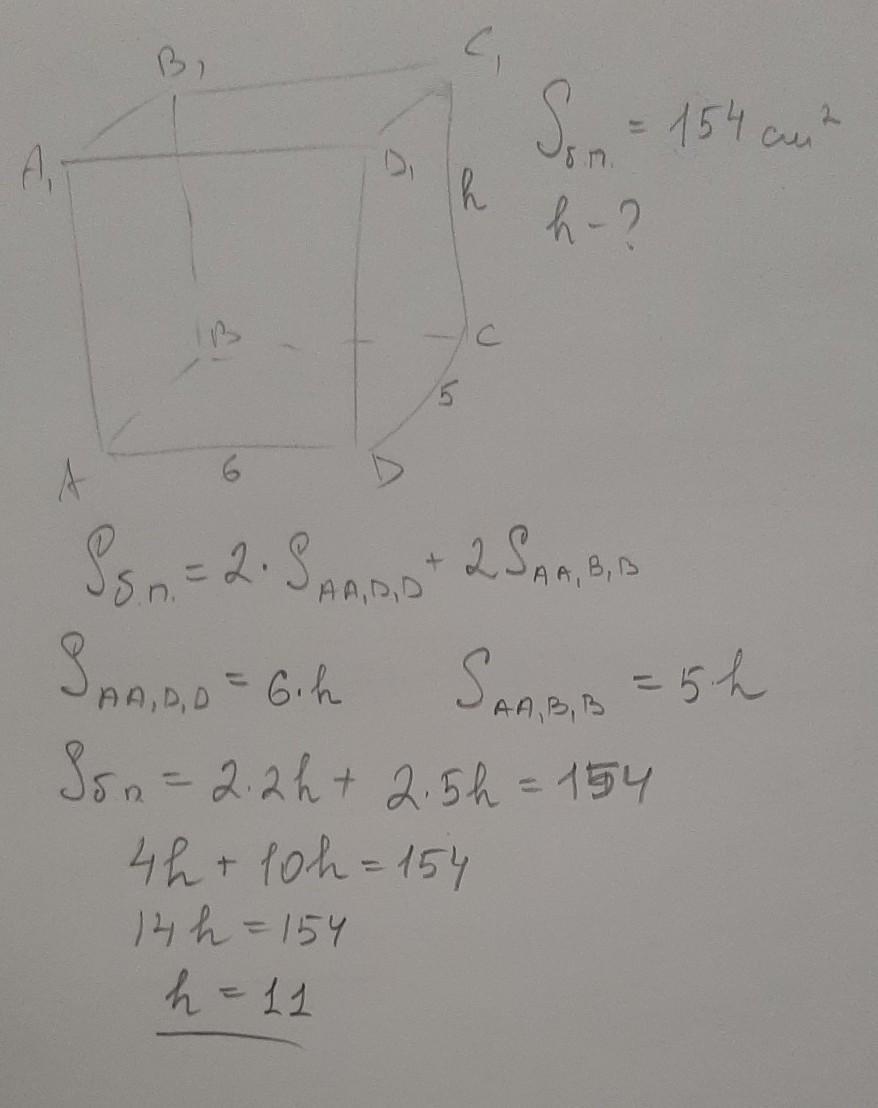 B₁
C₁
A₁
D₁
h
S б.п. = 154 см²
h - ?
B
C
5
A
6
D
S б.п. = 2 · S AA₁D₁D + 2 S AA₁B₁B
S AA₁D₁D = 6 · h S AA₁B₁B = 5 · h
S б п = 2 · 2h + 2 · 5h = 154
4h + 10h = 154
14h = 154
h = 11